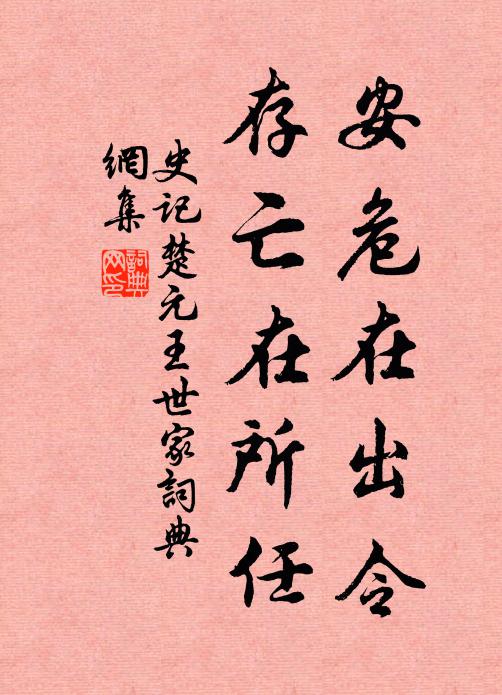 安危在出令
存亡在所任
史记楚元王世家詞典
網集
詞典
网印